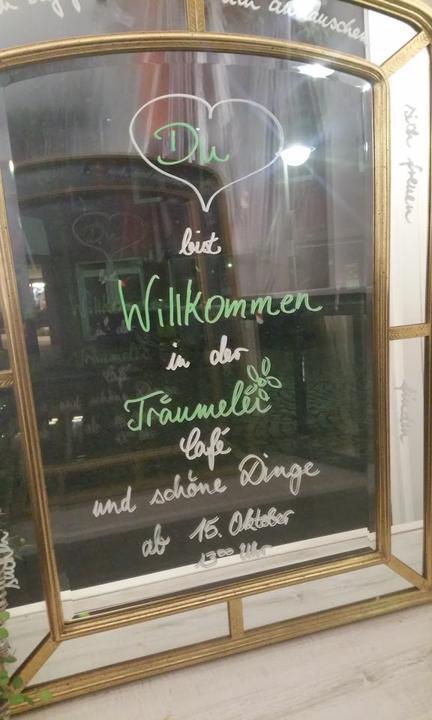 austauschen
Du
bist
Willkommen
in der
Träumelei
Café
und schöne Dinge
ab 15. Oktober
13⁰⁰ Uhr
sich freuen
finden